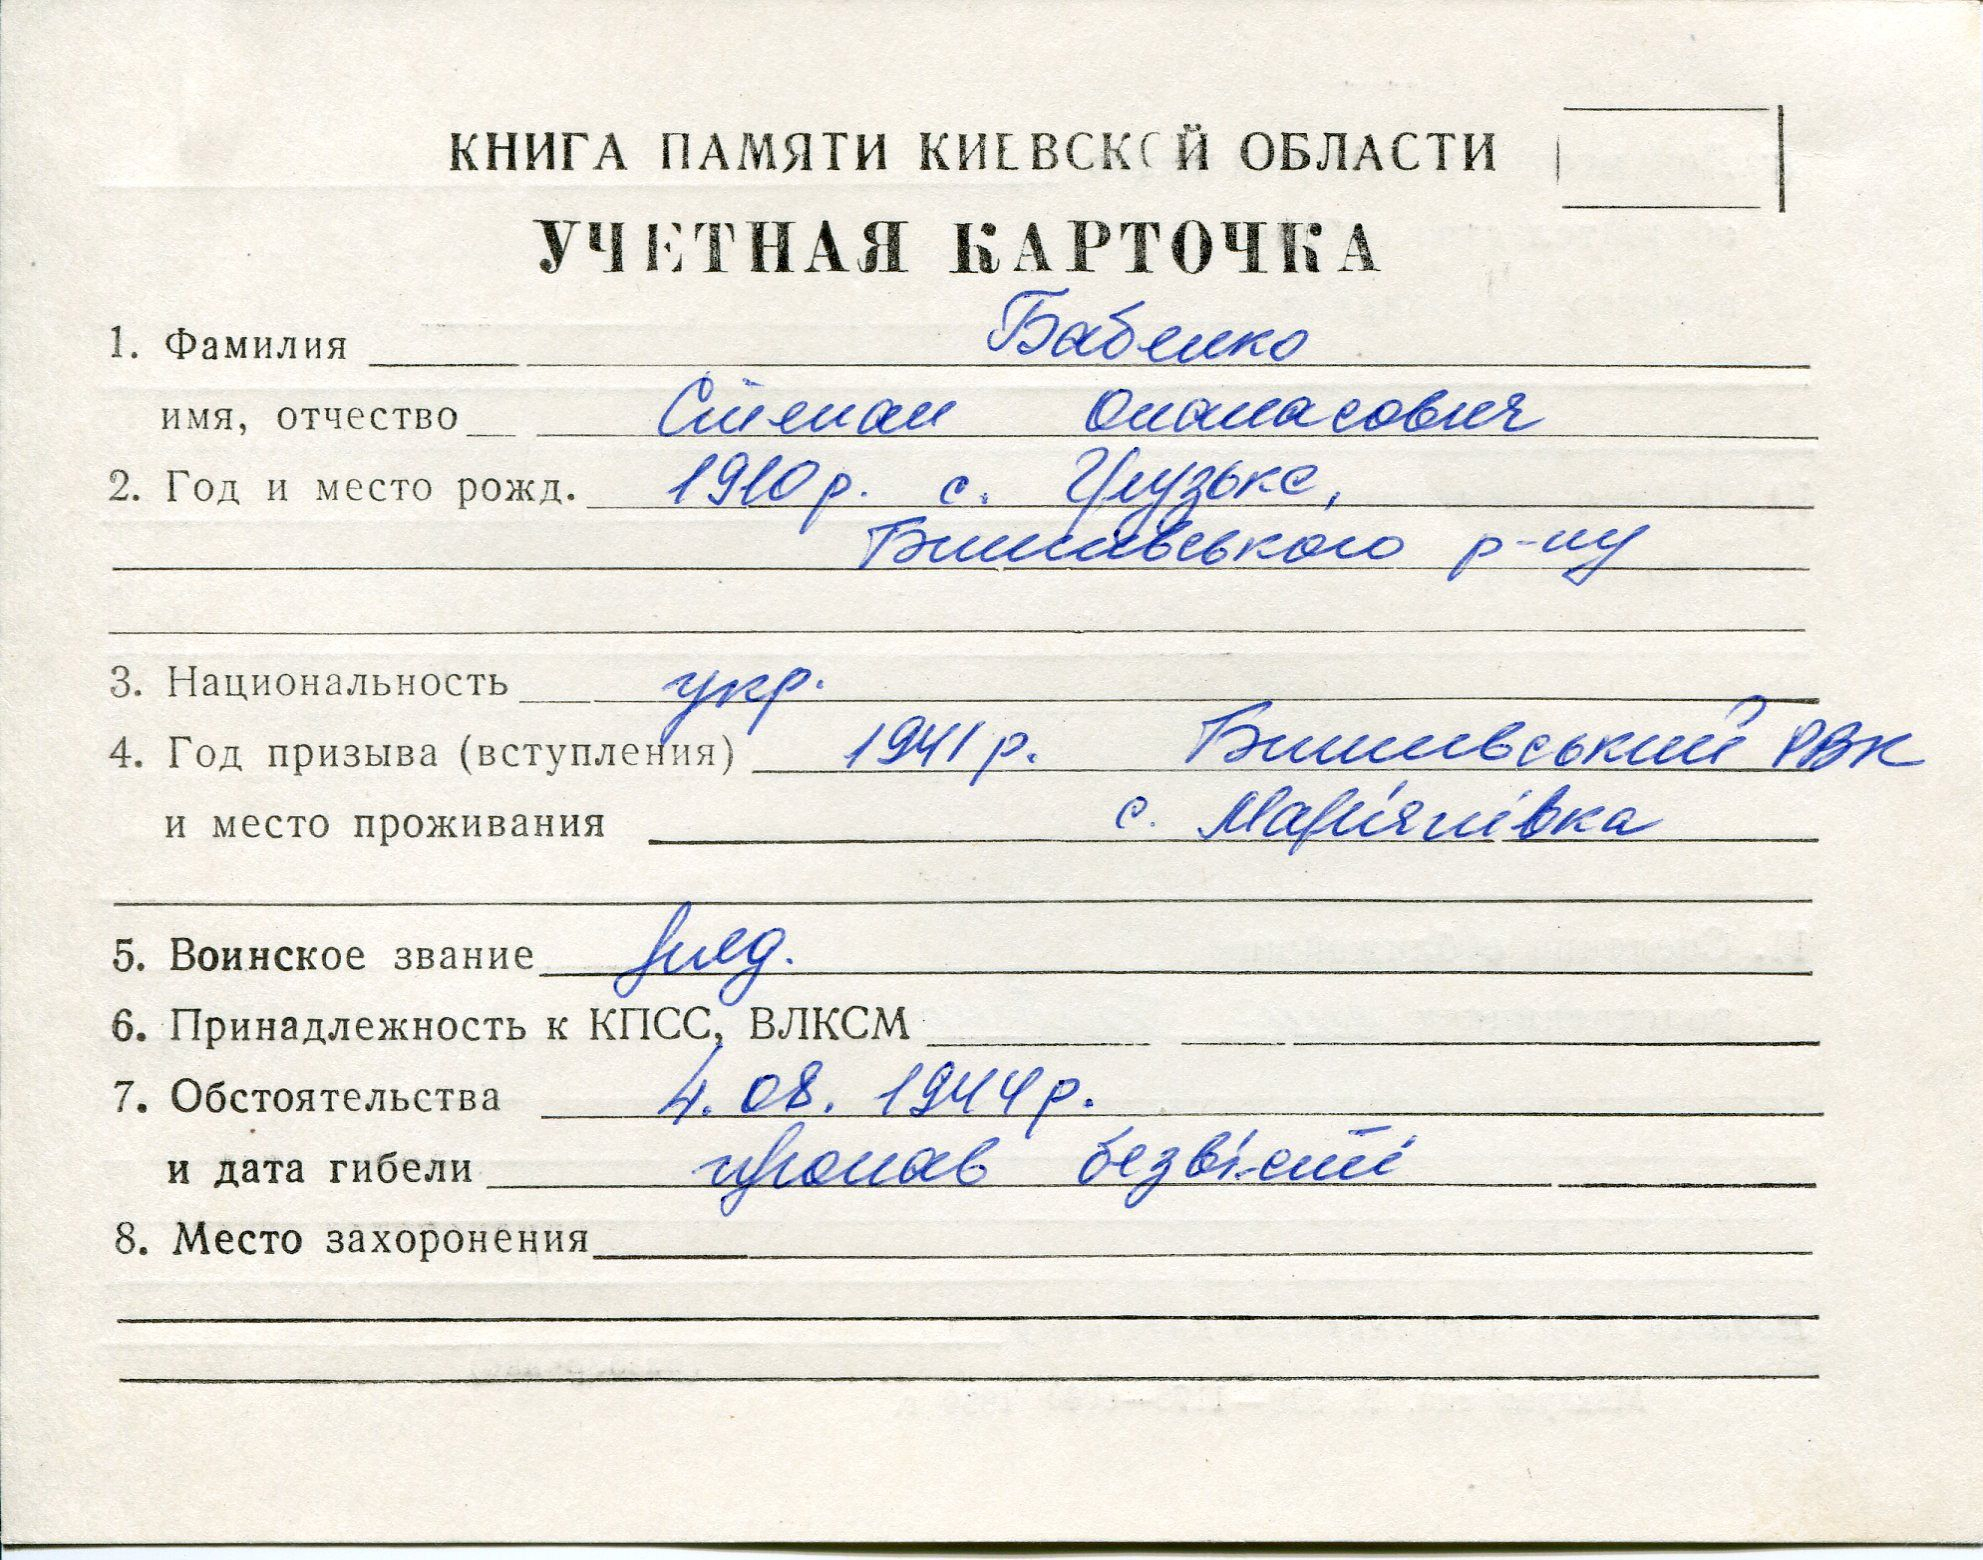 КНИГА ПАМЯТИ КИЕВСКОЙ ОБЛАСТИ
УЧЕТНАЯ КАРТОЧКА
1. Фамилия Бабенко
имя, отчество Степан Опанасович
2. Год и место рожд. 1910 р. с. Грузьке,
Бишивського р-ну
3. Национальность укр.
4. Год призыва (вступления) 1941 р. Бишивський РВК
и место проживания с. Мар'янівка
5. Воинское звание ряд.
6. Принадлежность к КПСС, ВЛКСМ
7. Обстоятельства 4.08.1944 р.
и дата гибели пропав безвісті
8. Место захоронения